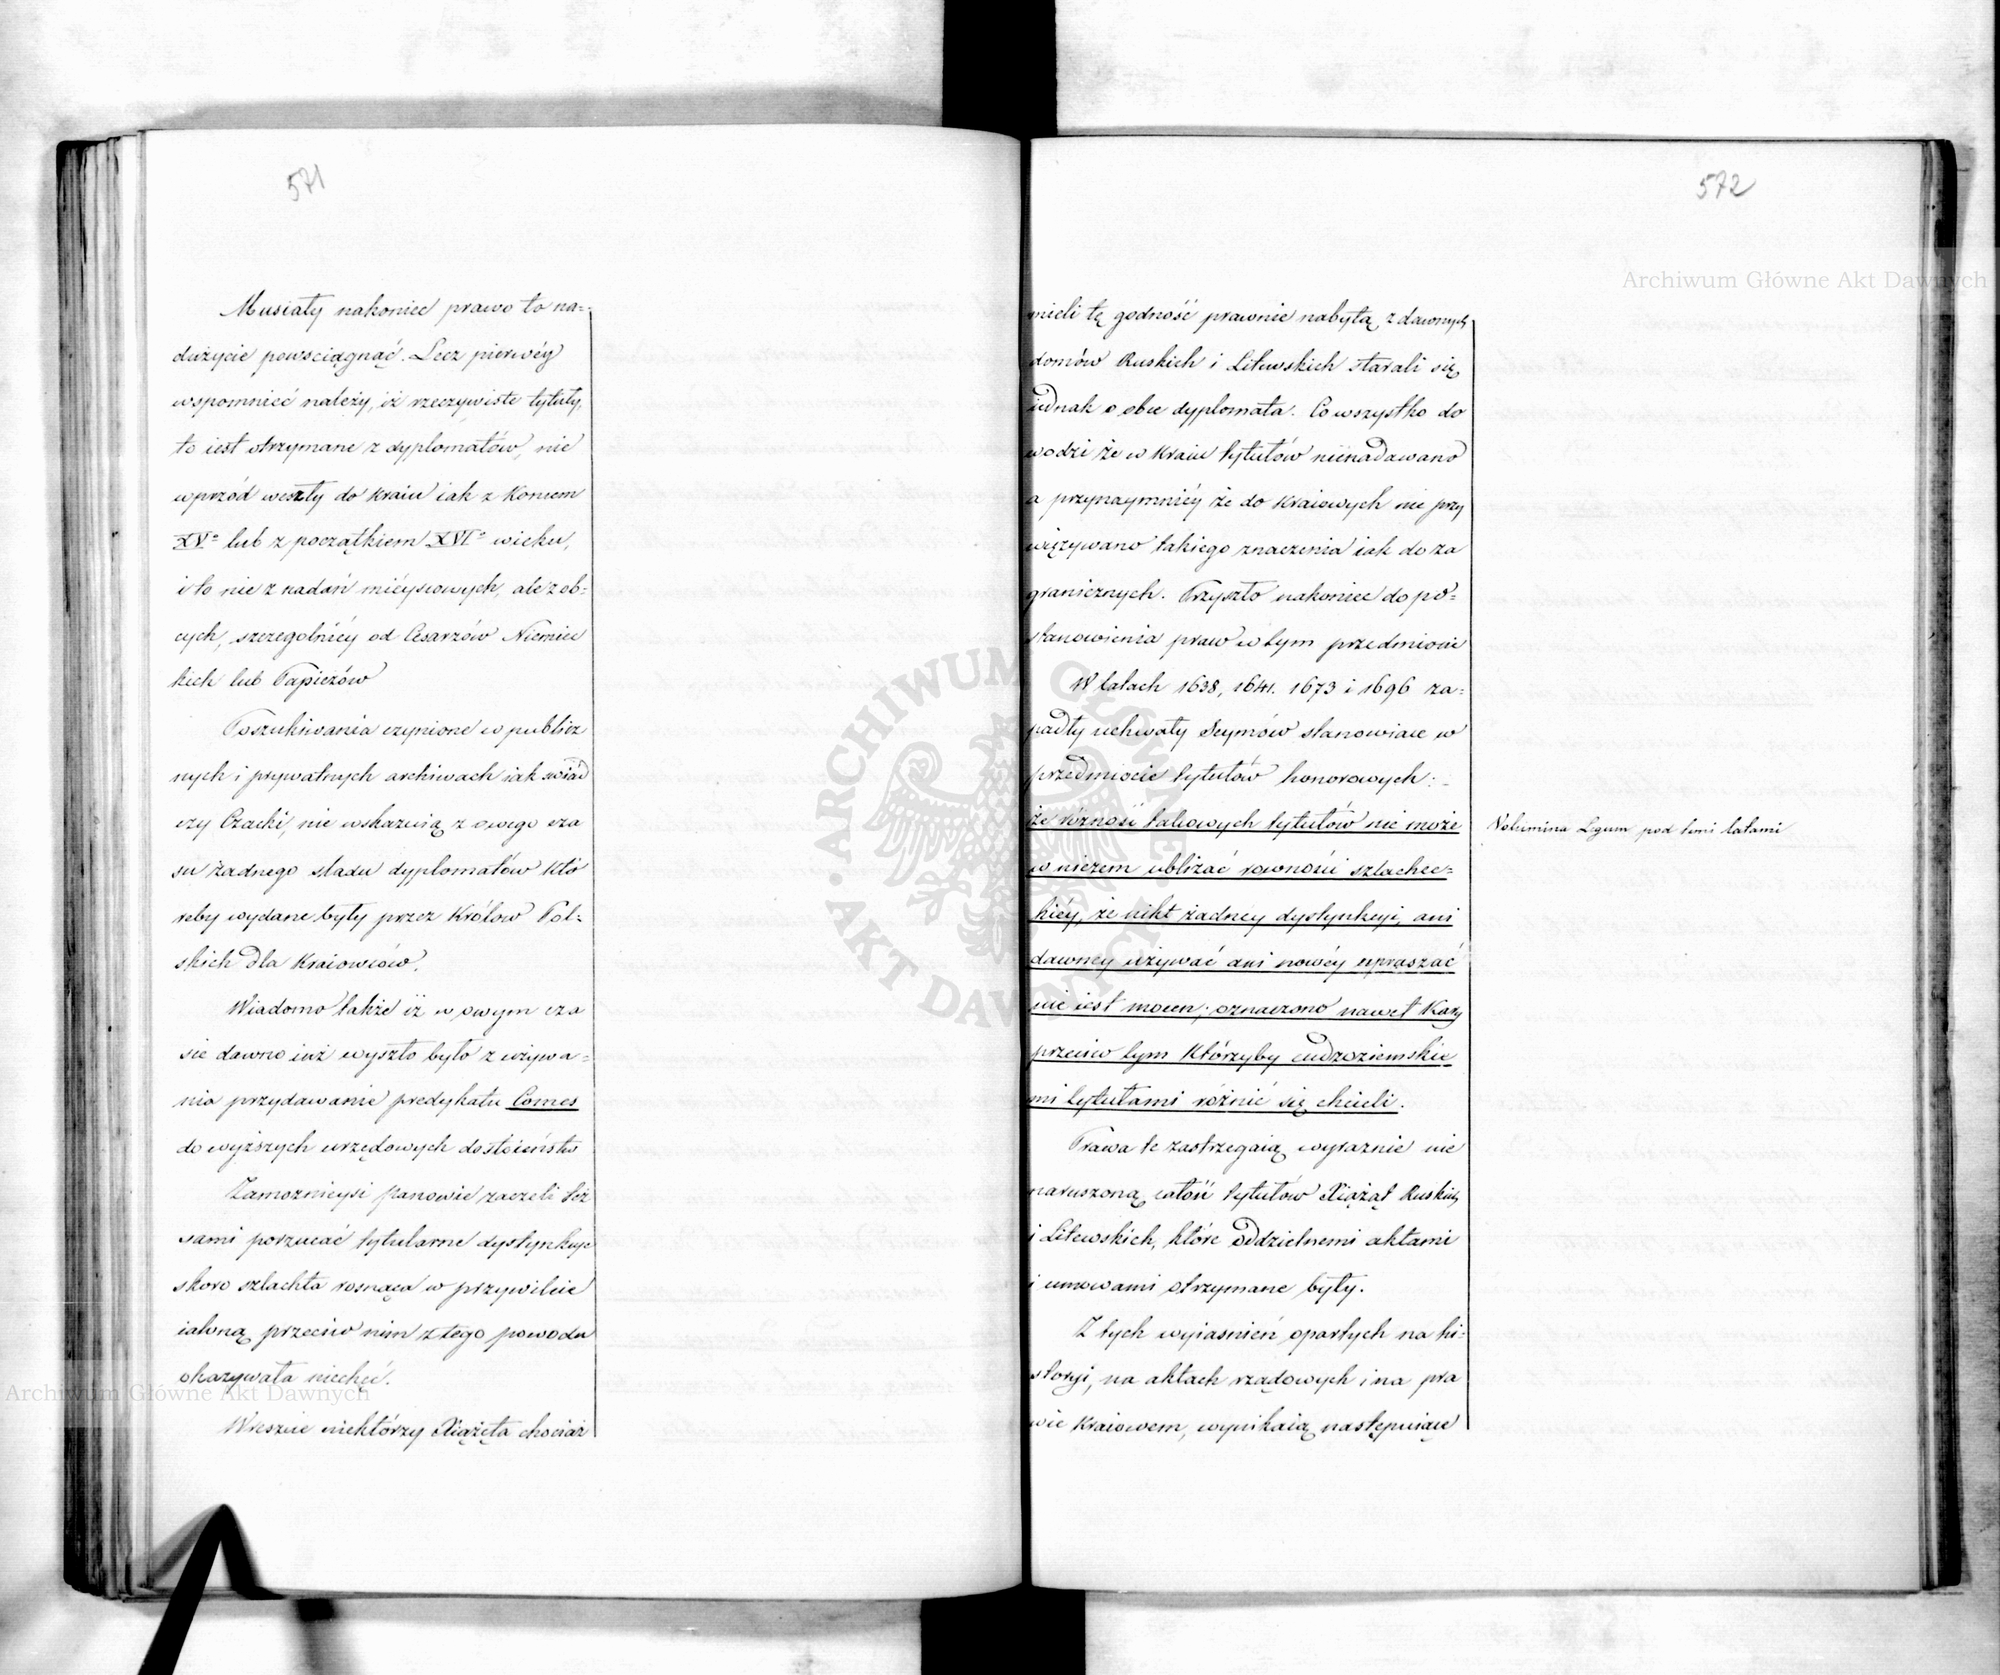 571
Musiały nakoniec prawo to na=
dużycie powsciągnąć. Lecz pierwéy
wspomnieć należy, iż rzeczywiste tytuły,
to iest otrzymane z dyplomatów, nie
wprzód weszły do kraiu iak z koncem
XVº lub z początkiem XVIº wieku,
i to nie z nadań mieyscowych, ale z ob=
cych, szczegolniey od Cesarzów Niemiec
kich lub Papieżów
Poszukiwania czynione w publicz
nych i prywatnych archiwach iak swiad
czy Czacki, nie wskazuią z owego cza
su żadnego sladu dyplomatów któ
reby wydane były przez Królow Pol=
skich dla Kraiowców.
Wiadomo także iż w owym cza
sie dawno iuż wyszło było z używa=
nia przydawanie predykatu Comes
do wyższych urzędowych dostoieństw
Zamoznieysi panowie zaczeli też
sami porzucać tytularne dystynkcye
skoro szlachta rosnąca w przywileie
iakoną przeciw nim z tego powodu
okazywała niechęć.
Wreszcie niektórzy Xiążęta chociaż
572
mieli tę godność prawnie nabytą z dawnych
domów Ruskich i Litewskich starali się
iednak o obce dyplomata. Co wszystko do
wodzi że w kraiu tytułów nienadawano
a przynaymniéy że do kraiowych nie przy
więzywano takiego znaczenia iak do za
granicznych. Przyszło nakoniec do po=
stanowienia praw w tym przedmiocie
W latach 1638, 1641. 1673 i 1696 za=
padły uchwały Seymów stanowiące w
przedmiocie tytułów honorowych:
że różność takowych tytułów nie może
w niczem ubliżać rowności szlachec=
kiéy, że nikt żadney dystynkcyi, ani
dawney używać ani nowéy upraszać
nie iest mocen; oznaczono nawet kary
przeciw tym którzyby cudzoziemskie
mi tytułami różnić się chcieli.
Volumina Legum pod temi latami
Prawa te zastrzegaią wyraznie nie
naruszoną całość tytułów Xiążąt Ruskich
i Litewskich, które oddzielnemi aktami
i umowami otrzymane były.
Z tych wyiasnień opartych na hi=
storyi, na aktach rządowych i na pra
wie kraiowem, wynikaią następuiące
Archiwum Główne Akt Dawnych
Archiwum Główne Akt Dawnych
ARCHIWUM GŁÓWNE · AKT DAWNYCH ·